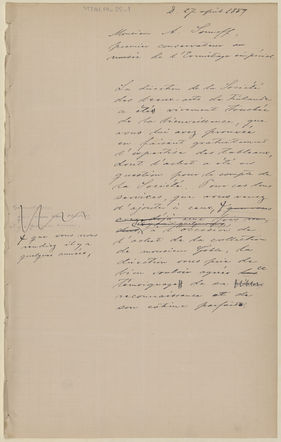 D. 27 april 1887
Monsieur A. Somoff,
premier conservateur au
musée de l'Ermitage impérial
La direction de la Société
des beaux-arts de Finlande
a été vivement touchée
de la bienveillance, que
vous lui avez prouvée
en faisant gratuitement
l'expertise des tableaux,
dont l'achat a été en
question pour le compte de
la Société. Pour ces bons
services, que vous venez
d'ajouter à ceux,
à l'occasion de
l'achat de la collection
de monsieur
direction vous prie de
bien vouloir agréer
témoignage de sa
reconnaissance et de
son estime parfaite.
que vous nous
rendiez il y a
quelques années,